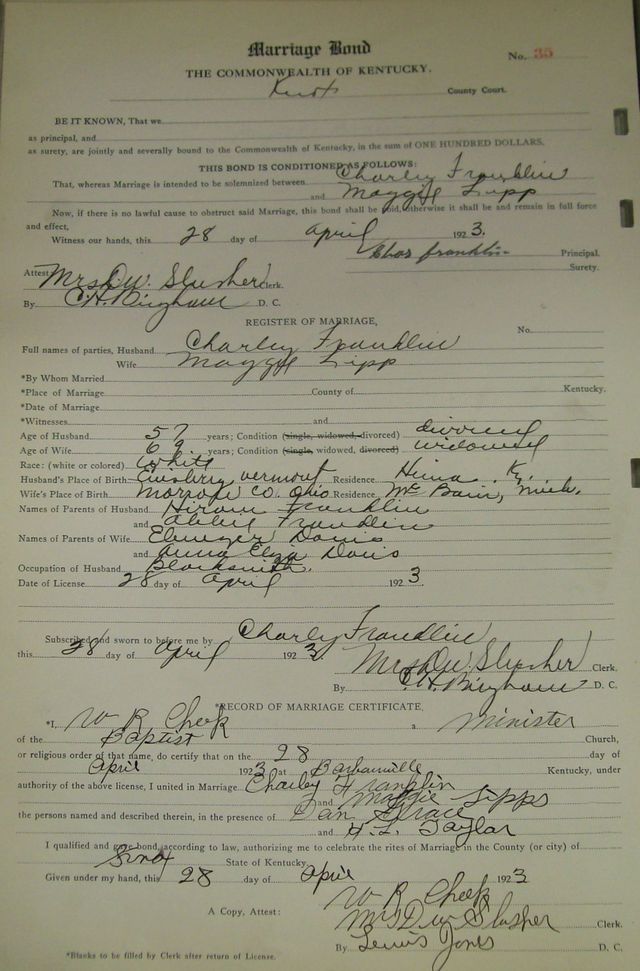 Marriage Bond
No. 35
THE COMMONWEALTH OF KENTUCKY.
Knox County Court.
BE IT KNOWN, That we
as principal, and
as surety, are jointly and severally bound to the Commonwealth of Kentucky, in the sum of ONE HUNDRED DOLLARS.
THIS BOND IS CONDITIONED AS FOLLOWS:
That, whereas Marriage is intended to be solemnized between Charley Franklin
and Maggie Lipp
Now, if there is no lawful cause to obstruct said Marriage, this bond shall be void, otherwise it shall be and remain in full force
and effect,
Witness our hands, this 28 day of April 1923.
Chas Franklin Principal.
Surety.
Attest: Mrs D.W. Slusher Clerk.
By C.H. Bingham D. C.
REGISTER OF MARRIAGE,
No.
Full names of parties, Husband Charley Franklin
Wife Maggie Lipp
*By Whom Married
*Place of Marriage County of Kentucky.
*Date of Marriage
*Witnesses and
Age of Husband 57 years; Condition (single, widowed, divorced) divorced
Age of Wife 69 years; Condition (single, widowed, divorced) widowed
Race: (white or colored) White
Husband's Place of Birth vermont Residence Hima. Ky.
Wife's Place of Birth Co. Ohio Residence Mc Bain, Mich.
Names of Parents of Husband Hiram Franklin
and Abbey Franklin
Names of Parents of Wife Ebenezer Davis
and Anna Eliza Davis
Occupation of Husband Blacksmith.
Date of License 28 day of April 1923.
Subscribed and sworn to before me by Charley Franklin
this 28 day of April 1923.
Mrs D.W. Slusher Clerk.
By C.H. Bingham D. C.
*RECORD OF MARRIAGE CERTIFICATE.
*I, W R Cheek a Minister
of the Baptist Church,
or religious order of that name, do certify that on the 28 day of
April 1923 at Barbourville Kentucky, under
authority of the above license, I united in Marriage Charley Franklin
and Maggie Lipps
the persons named and described therein, in the presence of Grace
and H. L. Taylor
I qualified and gave bond, according to law, authorizing me to celebrate the rites of Marriage in the County (or city) of
Knox State of Kentucky.
Given under my hand, this 28 day of April 1923
W R Cheek
A Copy, Attest: Mrs D W Slusher Clerk.
By Lewis Jones D. C.
*Blanks to be filled by Clerk after return of License.